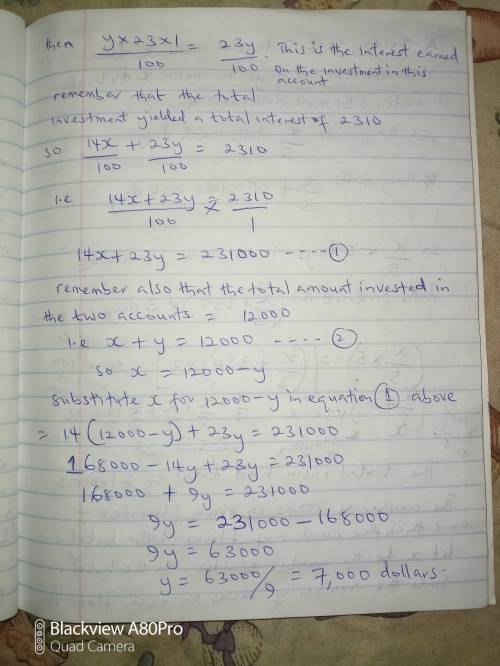 then y×23×1/100 = 23y/100. This is the interest earned
on the investment in this
account
remember that the total
investment yielded a total interest of 2310
so 14x/100 + 23y/100 = 2310
i.e 14x+23y/100 = 2310/1
14x+23y = 231000 ----- ①
remember also that the total amount invested in
the two accounts = 12000
i.e x + y = 12000 ---- ②
so x = 12000-y
substitute x for 12000-y in equation ① above
= 14(12000-y) + 23y = 231000
168000 - 14y + 23y = 231000
168000 + 9y = 231000
9y = 231000 - 168000
9y = 63000
y = 63000/9 = 7,000 dollars.
Blackview A80Pro
Quad Camera